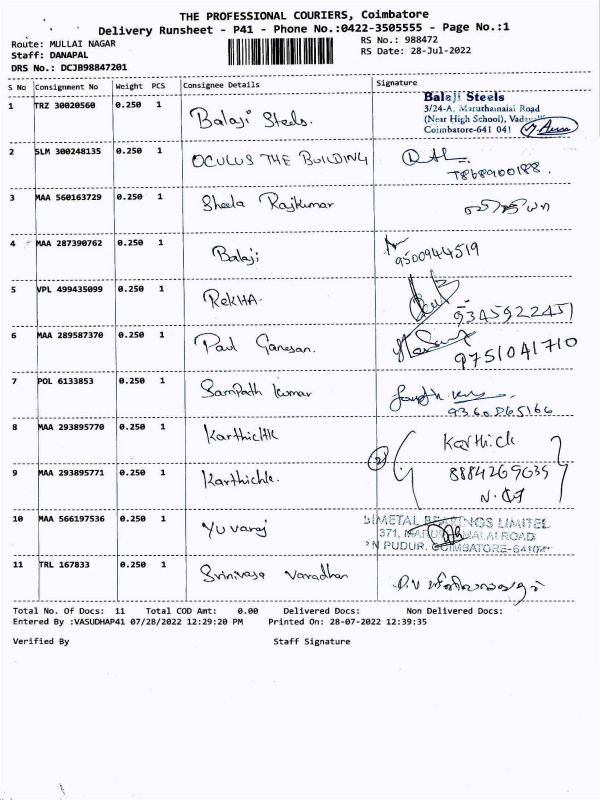 THE PROFESSIONAL COURIERS, Coimbatore
Delivery Runsheet - P41 - Phone No.:0422-3505555 - Page No.:1
Route: MULLAI NAGAR
RS No.: 988472
Staff: DANAPAL
RS Date: 28-Jul-2022
DRS No.: DCJB98847201
S No Consignment No Weight PCS Consignee Details Signature
1 TRZ 30020560 0.250 1 Balaji Steels.
Balaji Steels
3/24-A, Maruthamalai Road
(Near High School),
Coimbatore-641 041
2 SLM 300248135 0.250 1 OCULUS THE BUILDING
7868900188.
3 MAA 560163729 0.250 1 Sheela Rajkumar
4 MAA 287390762 0.250 1 Balaji
9500944519
5 VPL 499435099 0.250 1 REKHA.
9345922451
6 MAA 289587370 0.250 1 Paul Ganesan.
9751041710
7 POL 6133853 0.250 1 Sampath kumar
9360865166
8 MAA 293895770 0.250 1 Karthick
Karthick
9 MAA 293895771 0.250 1 Karthick.
8884269035
10 MAA 566197536 0.250 1 Yuvaraj
BIMETAL BEARINGS LIMITED
371, MARUTHAMALAI ROAD
PUDUR, COIMBATORE-641041
11 TRL 167833 0.250 1 Srinivasa Varadhan
Total No. Of Docs: 11 Total COD Amt: 0.00 Delivered Docs: Non Delivered Docs:
Entered By :VASUDHAP41 07/28/2022 12:29:20 PM Printed On: 28-07-2022 12:39:35
Verified By Staff Signature